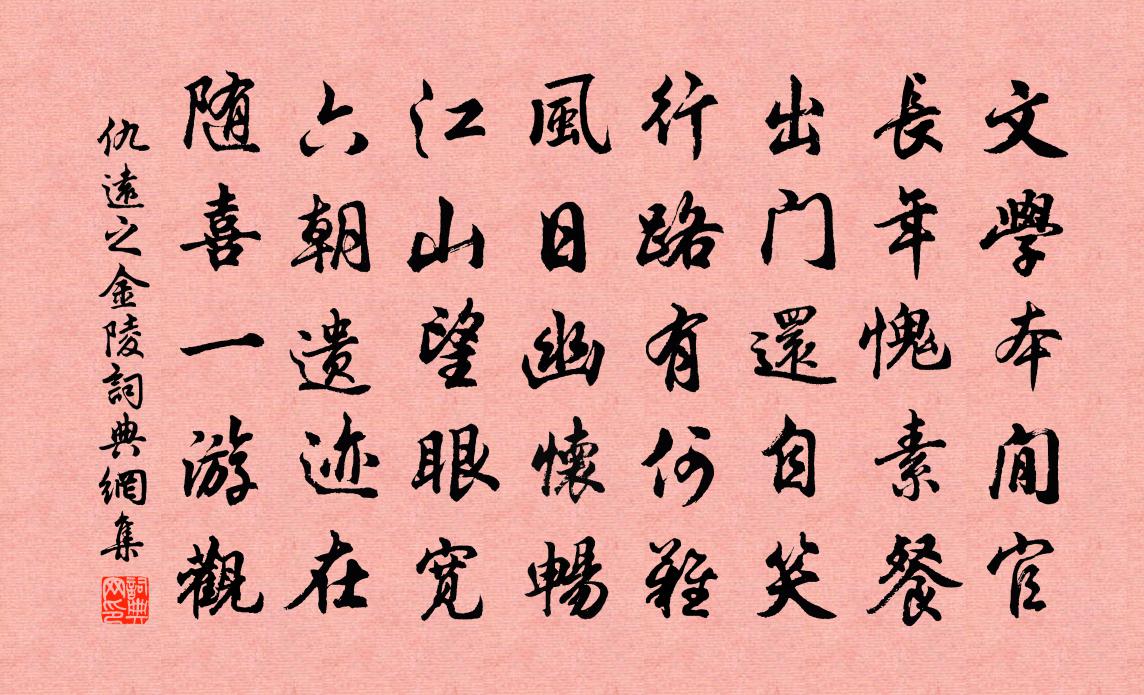 文學本閒官
長年愧素餐
出门還自笑
行路有何難
風日幽懷暢
江山望眼寬
六朝遗迹在
随喜一游觀
仇遠之金陵詞典網集
詞典网印